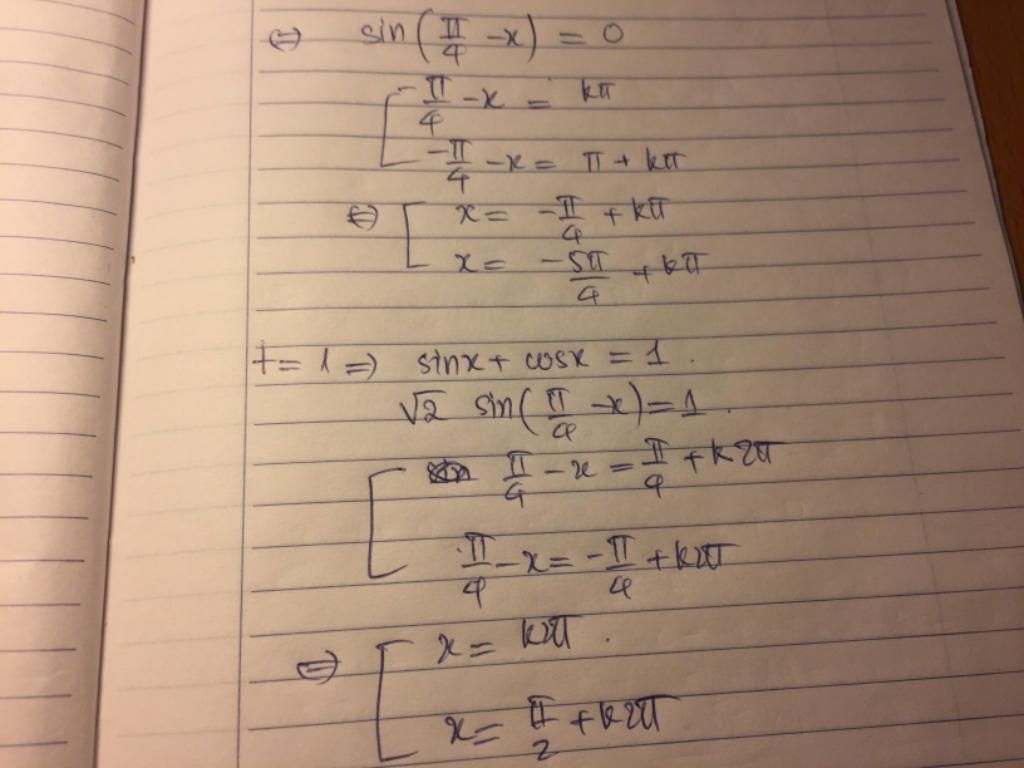 ⇔ sin(π/4 - x) = 0
-π/4 - x = kπ
-π/4 - x = π + kπ
⇔ x = -π/4 + kπ
x = -5π/4 + kπ
t = 1 ⇒ sinx + cosx = 1.
√2 sin(π/4 - x) = 1.
π/4 - x = π/4 + k2π
π/4 - x = -π/4 + k2π
⇔ x = k2π.
x = π/2 + k2π